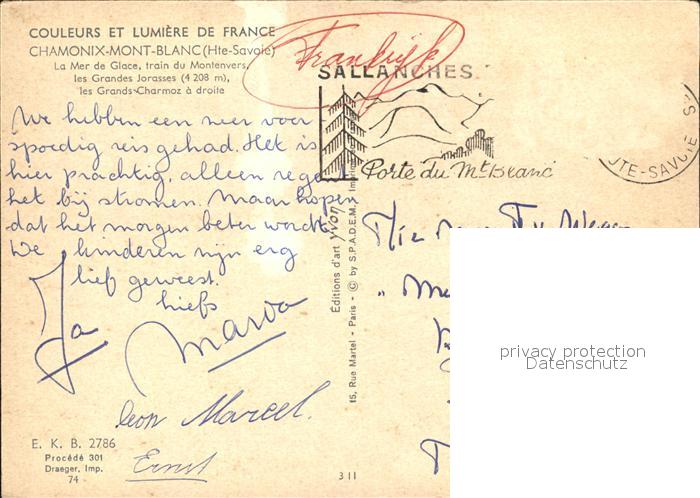 COULEURS ET LUMIÈRE DE FRANCE
CHAMONIX-MONT-BLANC (Hte-Savoie)
La Mer de Glace, train du Montenvers,
les Grandes Jorasses (4 208 m),
les Grands Charmoz à droite
Frankrijk
SALLANCHES
Porte du Mt Blanc
UTE-SAVOIE
We hebben een zeer voor
spoedig reis gehad. Het is
hier prachtig, alleen regent
het bij stromen. Maar hopen
dat het morgen beter wordt.
De kinderen zijn erg
lief geweest.
liefs
Ja
Marva
Leon Marcel.
Ernst
E. K. B. 2786
Procédé 301
Draeger, Imp.
74
311
Éditions d'art Yvon
15, Rue Martel - Paris - © by S.P.A.D.E.M.
privacy protection
Datenschutz